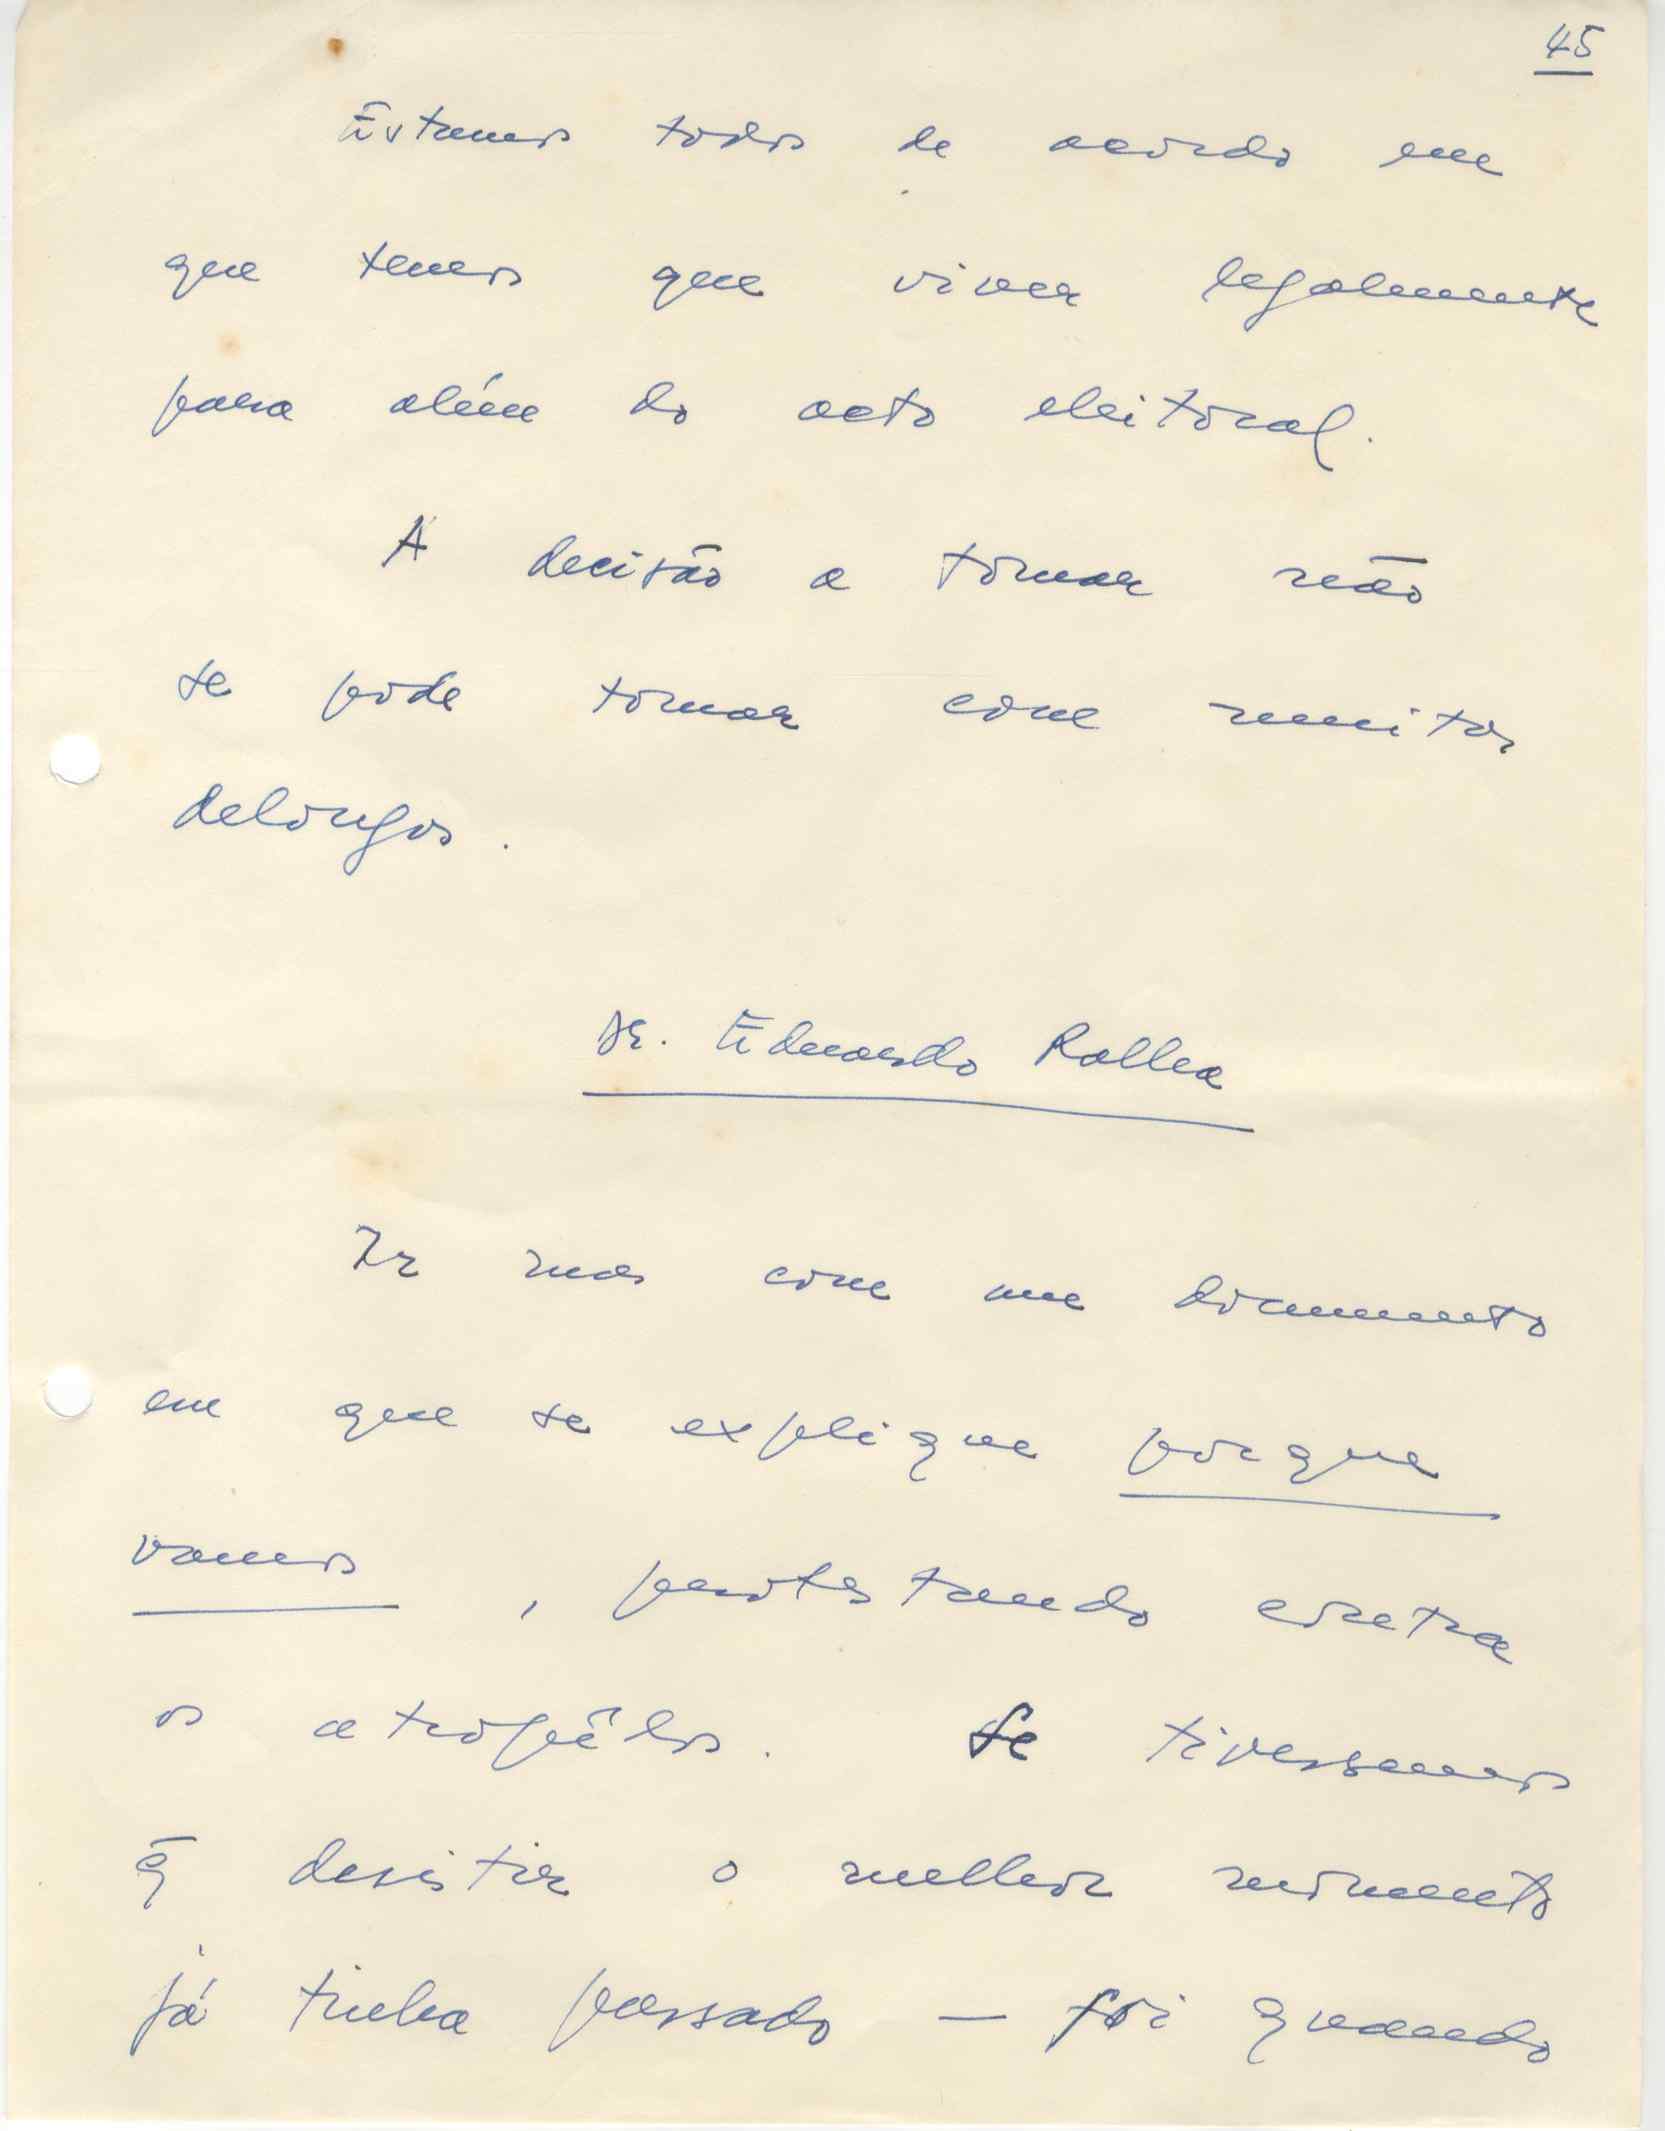 45
Estamos todos de acordo em
que temos que viver legalmente
para além do acto eleitoral.
A decisão a tomar não
se pode tomar com muitas
delongas.
Sr. Eduardo Ralha
Ir mas com um documento
em que se explique porque
vamos, protestando contra
os atropêlos. Se tivessemos
q̄ desistir o melhor momento
já tinha passado — foi quando